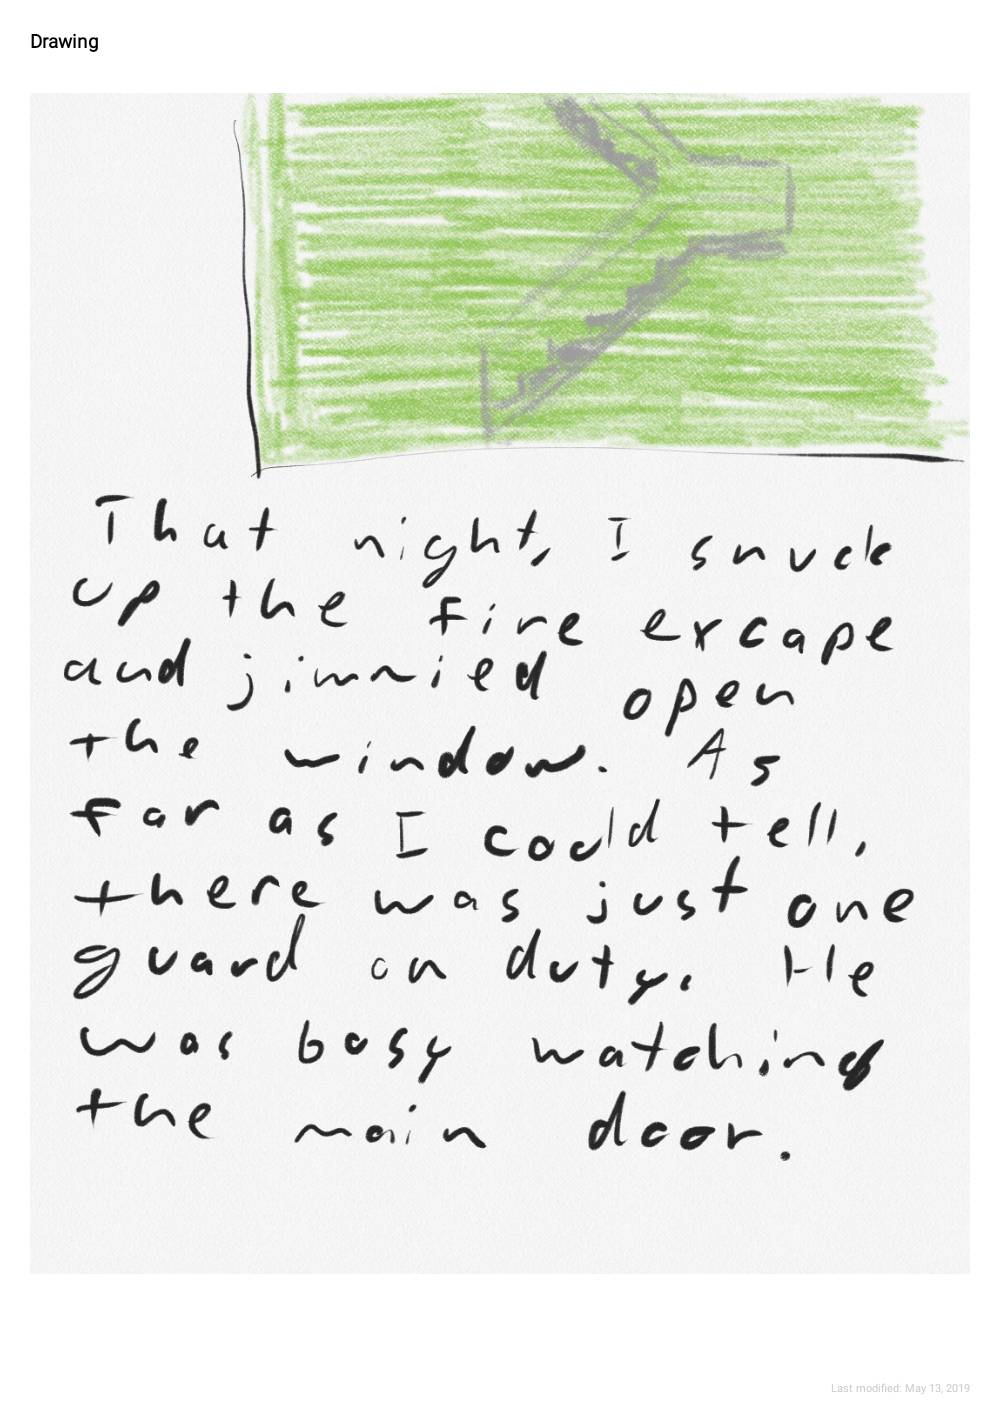 Drawing
That night, I snuck
up the fire excape
and jimmied open
the window. As
far as I could tell,
there was just one
guard on duty. He
was busy watching
the main door.
Last modified: May 13, 2019